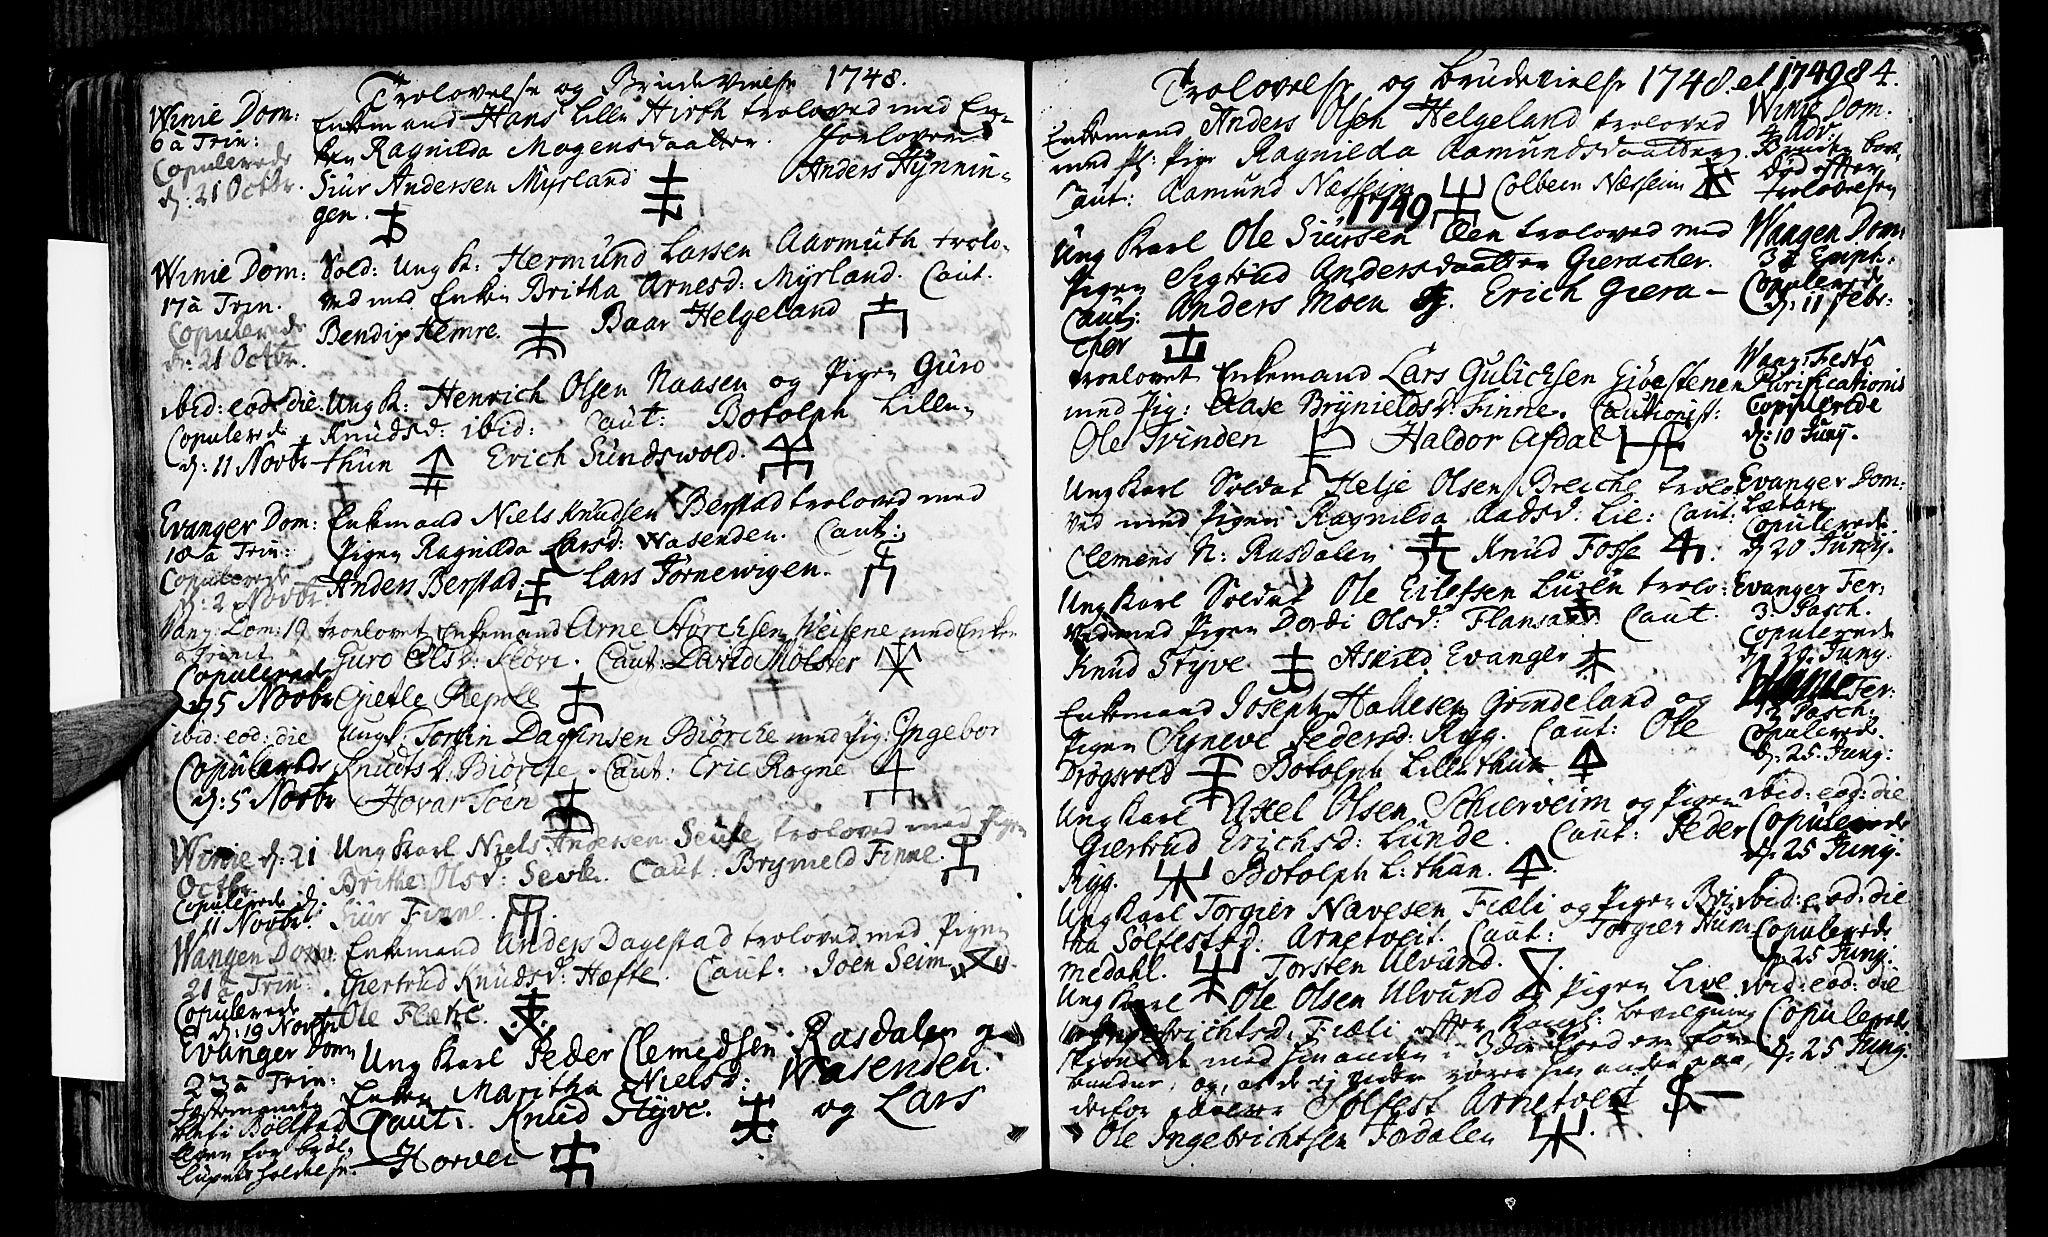 Trolovelse og Brudevielse 1748.
Winie Dom:
6 à Trin:
Copulerede
d: 21 Octbr.
Enkemand Hans Lille Hirth troloved med En-
ken Ragnilda Mogensdaatter. Forlovere
Siur Andersen Myrland Anders Hynnin-
gen.
Winie Dom:
17 à Trin.
Copulerede
d: 21 Octbr.
Sold: Ung K: Hermund Larsen Aarmuth trolo-
ved med Enken Britha Arnesd: Myrland. Caut.
Bendix Hemre. Baar Helgeland
ibid: eod: die.
Copulerede
d: 11 Novbr
Ung K: Henrich Olsen Naasen og Pigen Guro
Knudsd: ibid: Caut: Botolph Lille-
thun Erich Sundswold.
Evanger Dom:
18 à Trin:
Copulerede
d: 2 Novbr.
Enkemand Niels Knudsen Berstad troloved med
Pigen Ragnilda Larsd: Wasenden. Caut:
Anders Berstad. Lars Fornewigen.
Vang: Dom: 19
à Trinit
Copulerede
d: 5 Novbr
troelovet Enkemand Arne Styrchsen Weisene med Enken
Guro Olsd: Kløve. Caut: David Mølster
Gietle Repölle
ibid: eod: die
Copulerede
d: 5 Novbr
Ung K. Torfin Dagfinsen Biørche med Pig: Ingebor
Knudsd: Biörche. Caut: Eric Rogne
Hovar Töen
Winie d: 21
Octbr.
Copulerede d:
11 Novbr.
Ung Karl Niels Andersen Seufe troloved med Pigen
Brithe Olsd: Seufe. Caut: Brynield Finne.
Siur Finne.
Wangen Dom:
21 à Trin:
Copulerede
d: 19 Novbr
Enkemand Anders Dagestad troloved med Pigen
Giertrud Knudsd: Hæfte. Caut: Joen Seim
Ole Flæke.
Evanger Dom
23 à Trin:
Ung Karl Peder Clemedsen Rasdalen og
Enken Maritha Nielsd: Wasenden.
Caut: Knud Styve. og Lars
Horvei
Trolovelse og Brudevielse 1748 et 1749 84.
Enkemand Anders Olsen Helgeland troloved
med Pigen Ragnilda Aamundsdaatter
Caut: Aamund Næsheim Colbein Næsheim
Winie Dom.
4 Adv.
Bruden
død efter
trolovelsen
1749
Ung Karl Ole Siursen troloved med
Pigen Sigtrud Andersdaatter Gieracher.
Caut: Anders Moen og Erich Giera-
cher
Wangen Dom:
3 Epiph:
Copulerede
d: 11 Febr:
troelovet Enkemand Lars Gulichsen Giöestenen
med Pig: Aase Brynieldsd: Finne. Cautionist:
Ole Tvinden Haldor Afdal
Wang: Festo
Purificationis
Copulerede
d: 10 Junij.
Ung Karl Soldat Helje Olsen Breiche trolo-
ved med Pigen Ragnilda Aadsd: Lie: Caut:
Clemens N: Rasdalen Knud Fosse
Evanger Dom:
Lætare
Copulerede
d: 20 Junij.
Ung Karl Soldat Ole Eilefsen Lusen trolo-
ved med Pigen Dordi Olsd: Flansaas. Caut.
Knud Styve Askild Evanger
Evanger Fer:
3 Pasch.
Copulerede
d. 20. Junij:
Enkemand Joseph Hallesen Grindeland og
Pigen Syneve Pedersd: Ryg. Caut: Ole
Drögsvold Botolph Lillethun
Winie Fer:
Pasch.
Copulerede
d. 25. Junij:
Ung Karl Axel Olsen Schierveim og Pigen
Giertrud Erichsd: Lunde. Caut: Peder
Ryg. Botolph L:thun.
ibid: eod: die
Copulerede
d. 25 Junij.
Ung Karl Torgier Navesen Fiæli og Pigen Bri-
tha Sölfestsd: Arnetveit. Caut: Torgier Hum-
medahl. Torsten Ulvund.
ibid: eod: die
Copulerede
d. 25 Junij:
Ung Karl Ole Olsen Ulvund og Pigen Live
Ingebrichtsd: Fiæli efter Kongl: bevilgning
Sølfest Arnetveit
Ole Ingebrichtsen Fordalen
ibid: eod: die
Copulerede
d. 25 Junij: